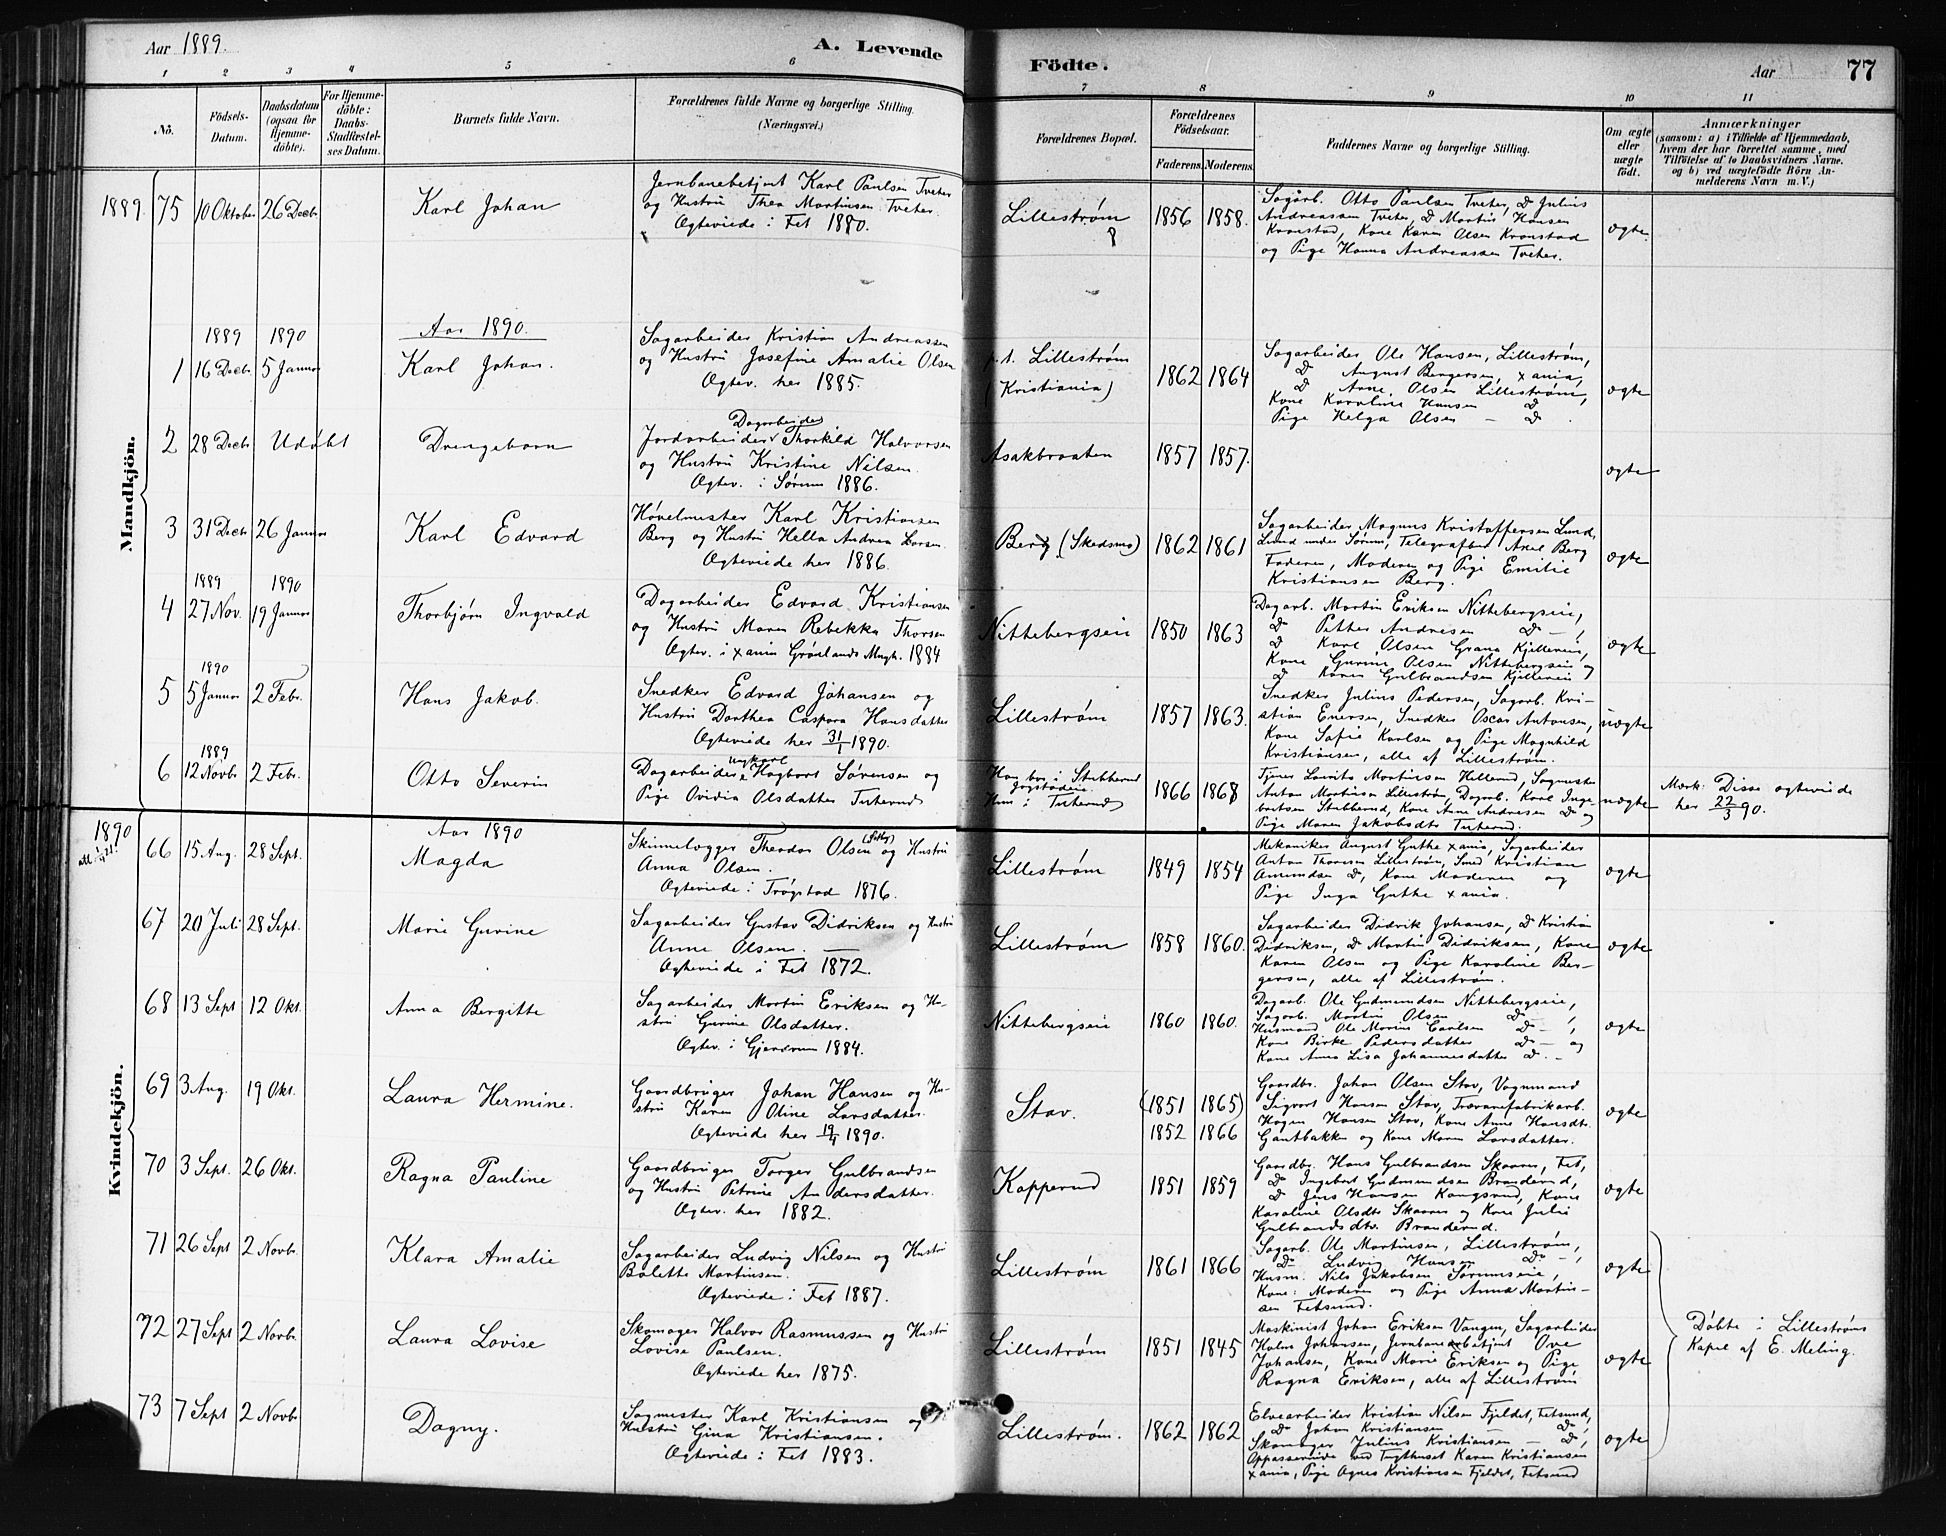 Aar 1889.
A. Levende
Födte.
Aar
77
1 2 3 4 5 6 7 8 9 10 11
No.
Födsels-
Datum.
Daabsdatum
(ogsaa for
Hjemme-
döbte).
For Hjemme-
döbte:
Daabs-
Stadfæstel-
ses Datum.
Barnets fulde Navn.
Forældrenes fulde Navne og borgerlige Stilling.
(Næringsvei.)
Forældrenes Bopæl.
Forældrenes
Födselsaar.
Faderens. Moderens.
Faddernes Navne og borgerlige Stilling.
Om ægte
eller
uægte
födt.
Anmærkninger
(saasom: a) i Tilfælde af Hjemmedaab,
hvem der har forrettet samme, med
Tilföielse af to Daabsvidners Navne.
og b) ved uægtefödte Börn An-
melderens Navn m. V.)
Mandkjön.
1889. 75 10 Oktober 26 Decb.
Karl Johan
Jernbanebetjent Karl Paulsen Tveter
og Hustru Thea Martinsen Tveter.
Ægteviede i Fet 1880.
Lillestrøm
1856 1858.
Sagarb. Otto Paulsen Tveter, Do Julius
Andreassen Tveter, Do Martin Hansen
Kronstad, Kone Karen Olsen Kronstad
og Pige Hanna Andreassen Tveter.
ægte
1889 1890
Aar 1890.
1 16 Decb. 5 Januar
Karl Johan.
Sagarbeider Kristian Andreassen
og Hustru Josefine Amalie Olsen
Ægtev. her 1885.
p.t. Lillestrøm
(Kristiania)
1862 1864
Sagarbeider Ole Hansen, Lillestrøm,
Do August Bergersen, xania,
Do Arne Olsen Lillestrøm,
Kone Karoline Hansen Do
Pige Helga Olsen – Do.
ægte
2 28 Decb. Udøbt
Drengebarn
Dagarbeider
Jordarbeider Thorkild Halvorsen
og Hustru Kristine Nilsen.
Ægtev. i Sørum 1886.
Asakbraaten
1857 1857.
ægte
3 31 Decb. 26 Januar
Karl Edvard
Høvelmester Karl Kristiansen
Berg og Hustru Hella Andrea Larsen.
Ægteviede her 1886.
Berg (Skedsmo)
1862 1861
Sagarbeider Magnus Kristoffersen Lund,
Lund under Sørum, Telegrafbud Axel Berg
Faderen, Moderen og Pige Emilie
Kristiansen Berg.
ægte
1889 1890
4 27 Nov. 19 Januar
Thorbjørn Ingvald
Dagarbeider Edvard Kristiansen
og Hustru Maren Rebekka Thorsen
Ægtev. i xania Grønlands Mngh. 1884
Nittebergseie
1850 1863
Dagarb. Martin Eriksen Nittebergseie,
Do Petter Andresen Do – ,
Do Karl Olsen Grana Kjellereie,
Kone Gurine Olsen Nittebergseie og
Do Karen Gulbrandsen Kjellereie
ægte
1890
5 5 Januar 2 Febr.
Hans Jakob.
Snedker Edvard Johansen og
Hustru Dorthea Caspara Hansdatter
Ægteviede her 31/1 1890.
Lillestrøm
1857 1863.
Snedker Julius Pedersen, Sagarb. Kri-
stian Enersen, Snedker Oscar Antonsen,
Kone Sofie Karlsen og Pige Magnhild
Kristiansen, alle af Lillestrøm.
uægte
1889
6 12 Novbr 2 Febr.
Otto Severin
Dagarbeider ungkarl Hagbart Sørensen og
Pige Ovidia Olsdatter Tuterud
Han bor i Stubberud
Hun i Tuterud
1866 1868
Tjener Laurits Martinsen Hellerud, Sagmester
Anton Martinsen Lillestrøm, Dagarb. Karl Inge-
bretsen Stubberud, Kone Anne Andresen Do og
Pige Maren Jakobsdtr Tuterud.
uægte
Mærk: Disse ægteviede
her 22/3 90.
Kvindekjön.
1890
Aar 1890
66 15 Aug. 28 Sept.
Magda
Skinnelægger Theodor Olsen og Hustru
Anna Olsen.
Ægteviede i Trøgstad 1876.
Lillestrøm
1849 1854
Mekaniker August Guthe xania, Sagarbeider
Anton Thoresen Lillestrøm, Smed Kristian
Amundsen Do, Kone Moderen og
Pige Inga Guthe xania.
ægte
67 20 Juli 28 Sept.
Marie Gurine
Sagarbeider Gustav Didriksen og Hustru
Anne Olsen. —
Ægteviede i Fet 1872.
Lillestrøm
1858 1860.
Sagarbeider Didrik Johansen, Do Kristian
Didriksen, Do Martin Didriksen, Kone
Karen Olsen og Pige Karoline Ber-
gersen, alle af Lillestrøm.
ægte
68 13 Sept 12 Okt.
Anna Bergitte
Sagarbeider Martin Eriksen og Hu-
stru Gurine Olsdatter.
Ægtev. i Gjerdrum 1884.
Nittebergseie
1860 1860.
Dagarb. Ole Gudmundsen Nittebergseie,
Sagarb. Martin Olsen Do – ,
Husmand Ole Marius Carlsen Do – ,
Kone Birke Pedersdatter Do – og
Kone Anna Lisa Johannesdatter Do. –
ægte
69 3 Aug. 19 Okt.
Laura Hermine.
Gaardbruger Johan Hansen og Hu-
stru Karen Oline Larsdatter.
Ægteviede her 19/4 1890.
Stav.
(1851 1865)
1852 1866
Gaardbr. Johan Olsen Stav, Vognmand
Sigvart Hansen Stav, Trævarefabrikarb.
Hagen Hansen Stav, Kone Anne Hansdtr.
Gantbakken og Kone Maren Larsdatter.
ægte
70 3 Sept. 26 Okt.
Ragna Pauline
Gaardbruger Torger Gulbrandsen
og Hustru Petrine Andersdatter.
Ægtev. her 1882.
Kapperud
1851 1859
Gaardbr. Hans Gulbrandsen Skaarer, Fet,
Do Ingebret Gudmundsen Branderud,
Do Jens Hansen Kongsrud, Kone
Karoline Olsdtr Skaarer og Kone Julie
Gulbrandsdtr. Branderud.
ægte
71 26 Sept 2 Novbr.
Klara Amalie
Sagarbeider Ludvig Nilsen og Hustru
Bolette Martinsen.
Ægteviede i Fet 1887.
Lillestrøm
1861 1866
Sagarb. Ole Martinsen, Lillestrøm,
Do Ludvig Hansen Do – ,
Husm. Nils Jakobsen Sørumseie,
Kone: Moderen og Pige Anna Martin-
sen Fetsund.
ægte
72 27 Sept 2 Novbr.
Laura Lovise
Skomager Halvor Rasmussen og Hustru
Lovise Paulsen.
Ægteviede her 1875.
Lillestrøm
1851 1845
Maskinist Johan Eriksen Vangen, Sagarbeider
Holm Johansen, Jernbanebetjent Ove
Johansen, Kone Marie Eriksen og Pige
Ragna Eriksen, alle af Lillestrøm
ægte
Døbte i Lillestrøms
Kapel af E. Meling.
73 7 Sept 2 Novbr
Dagny.
Sagmester Karl Kristiansen og
Hustru Gina Kristiansen.
Ægteviede i Fet 1883.
Lillestrøm.
1862 1862
Elvearbeider Kristian Nilsen Fjeldet, Fetsund,
Do Johan Kristiansen – Do,
Skomager Julius Kristiansen – Do,
Oppasserinde ved Tugthuset Karen Kristiansen
xania, Pige Agnes Kristiansen Fjeldet, Fetsund
ægte